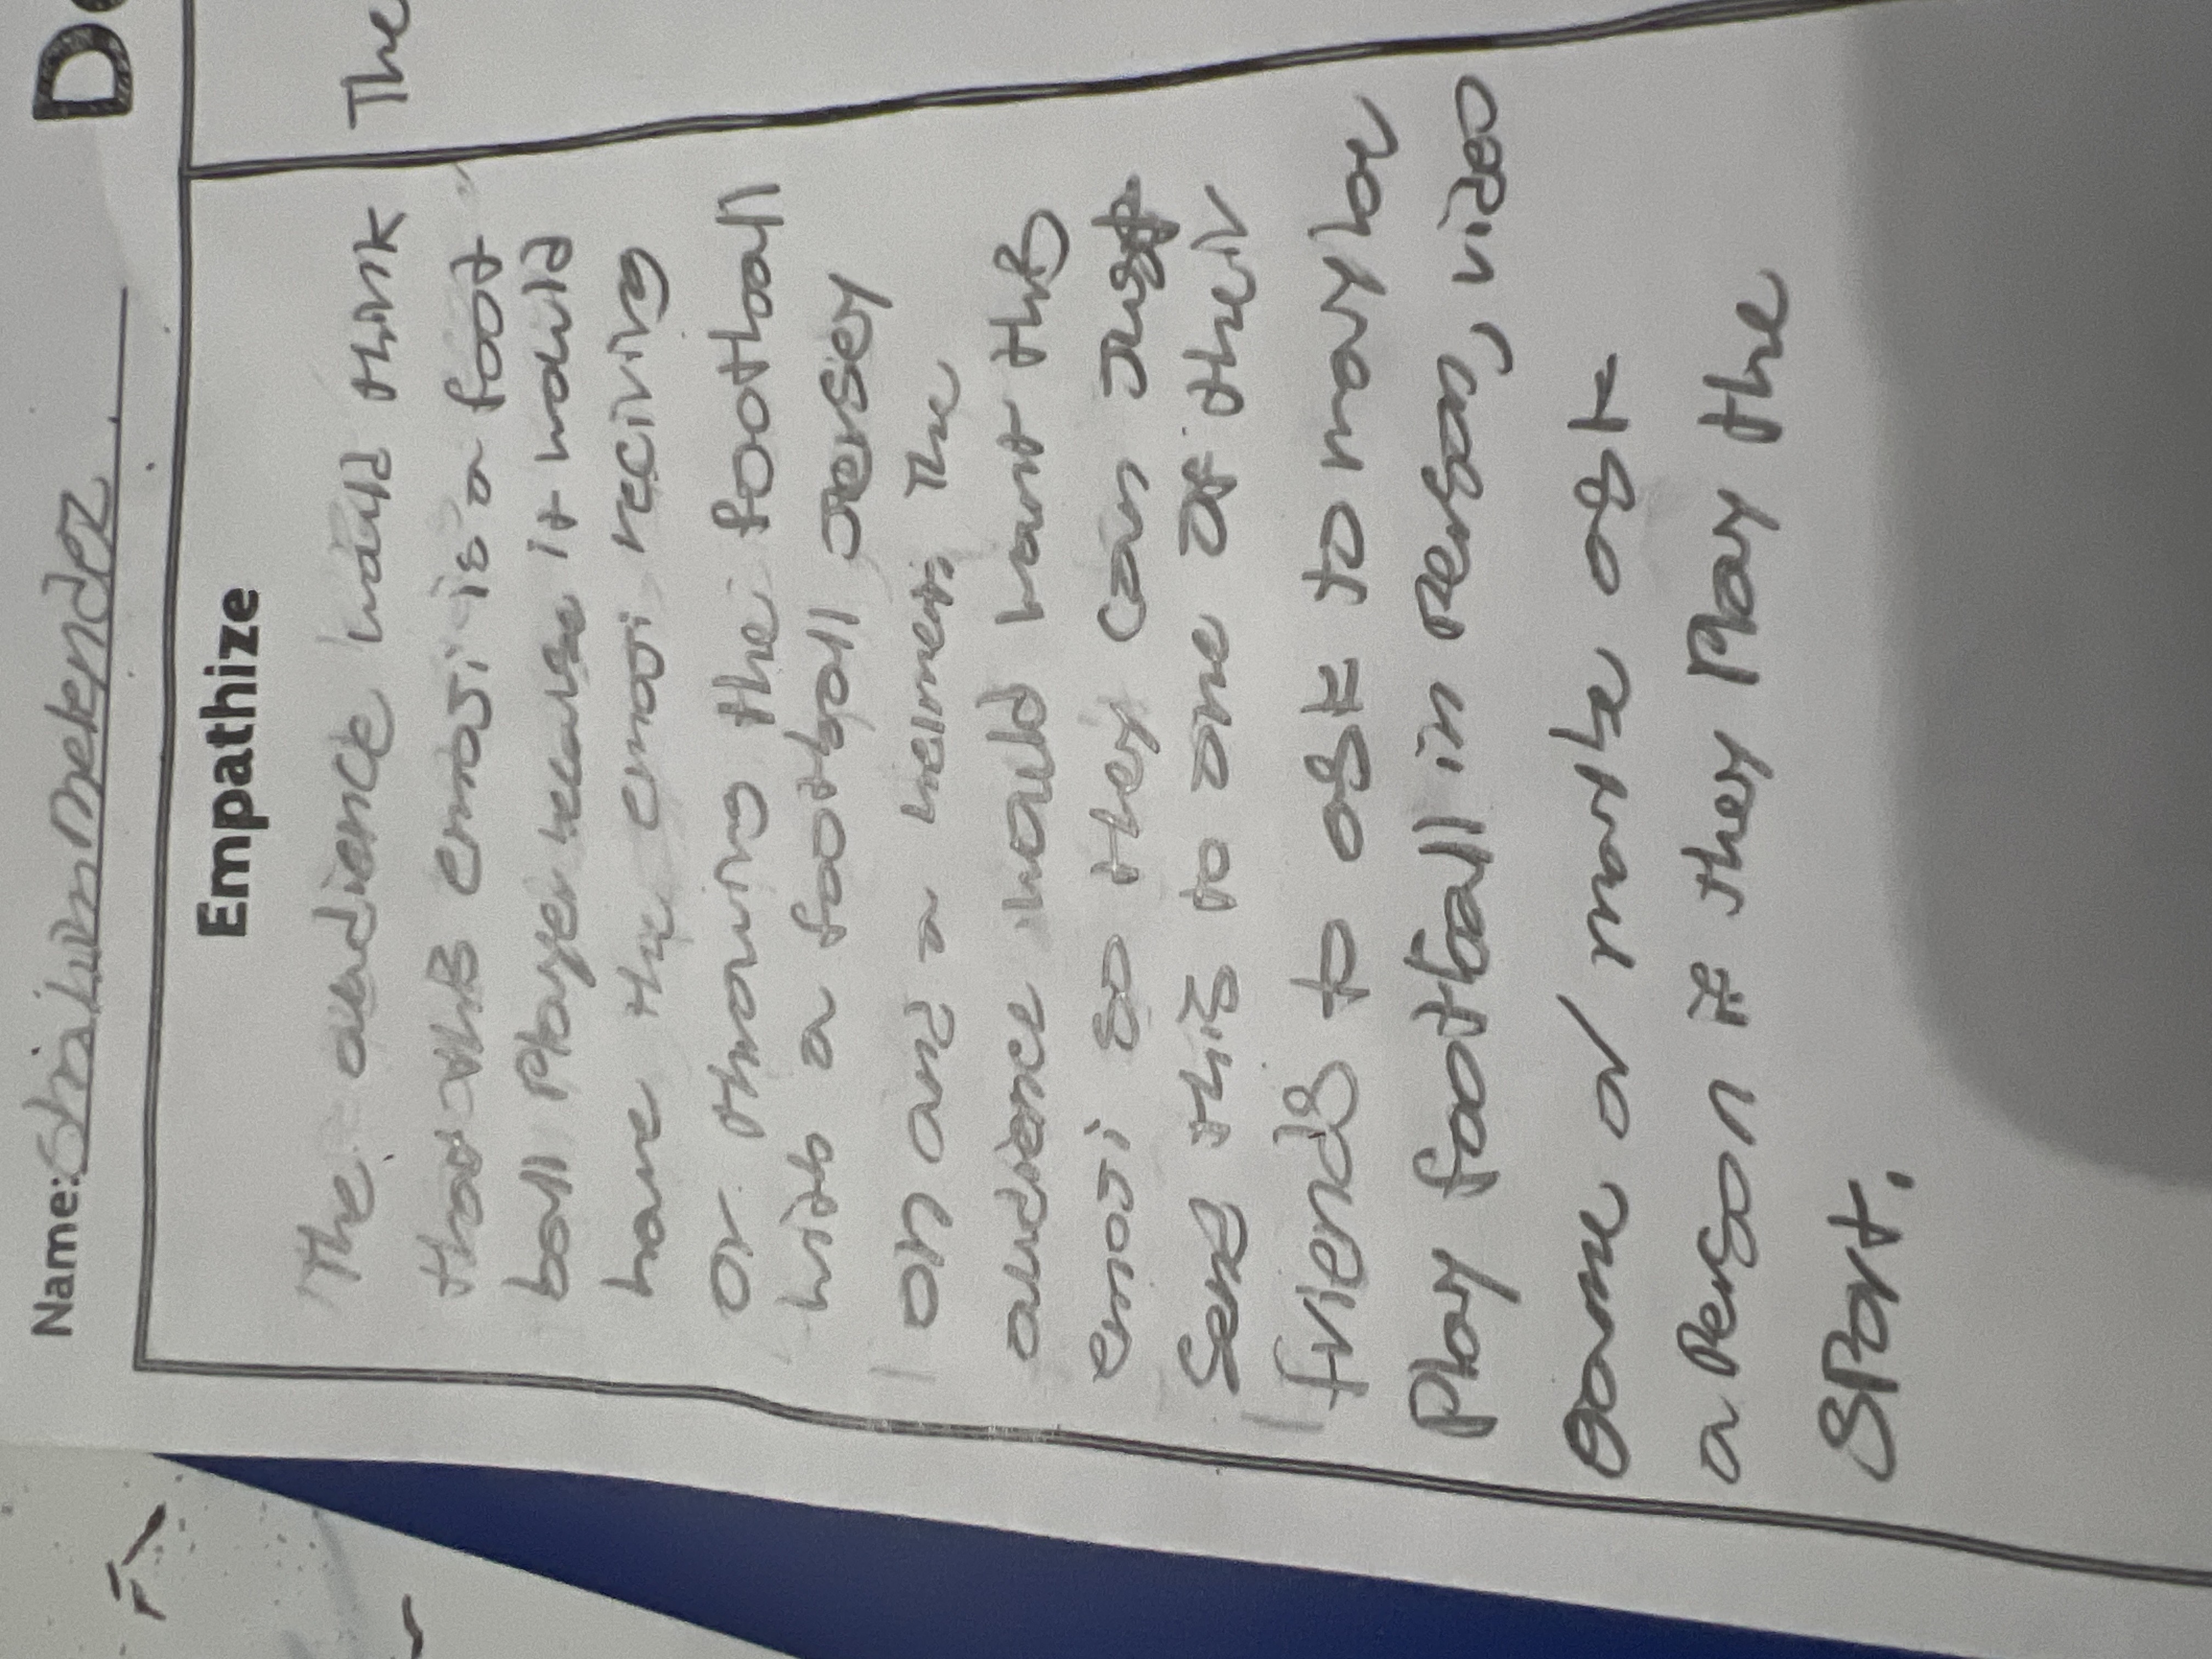 Name: Melendez
De
Empathize
The audience would think
that this emoji is a foot
ball Player because it would
have the emoji reciving
or throwing the football
with a football Jersey
on and a helmet. The
audience would want this
emoji so they can Just
Send this to one of their
friends to ask to maybe
Play football in Person, video
Game or maybe ask
a Person if they Play the
SPort.
The